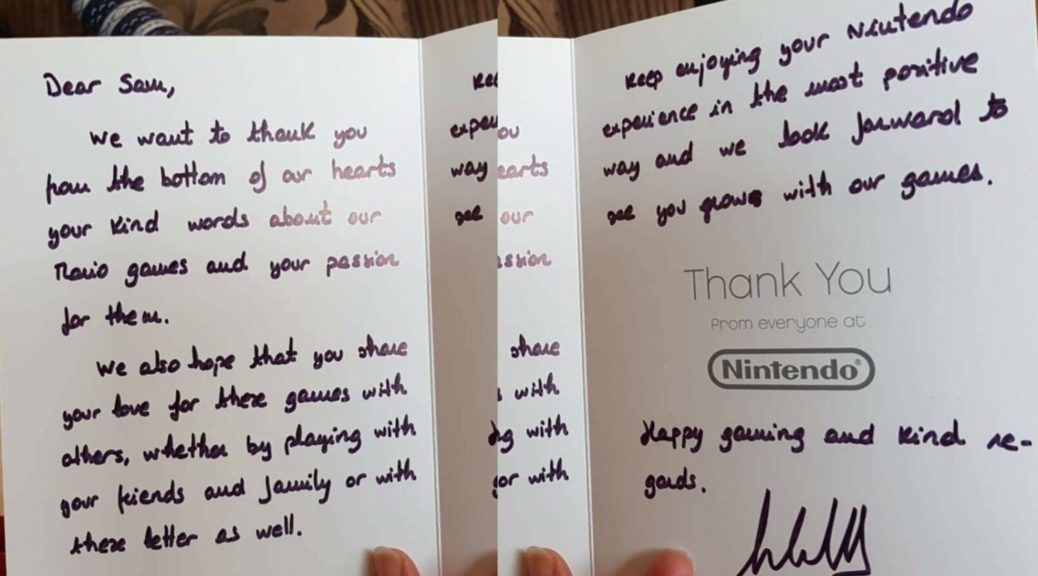 Dear Sam,
We want to thank you
from the bottom of our hearts
your kind words about our
Mario games and your passion
for them.
We also hope that you share
your love for these games with
others, whether by playing with
your friends and family or with
these letter as well.
Kee
expe
way
see
ou
earts
our
ssion
share
s with
ng with
or with
Keep enjoying your Nintendo
experience in the most positive
way and we look forward to
see you grows with our games.
Thank You
from everyone at
Nintendo®
Happy gaming and kind re-
gards.